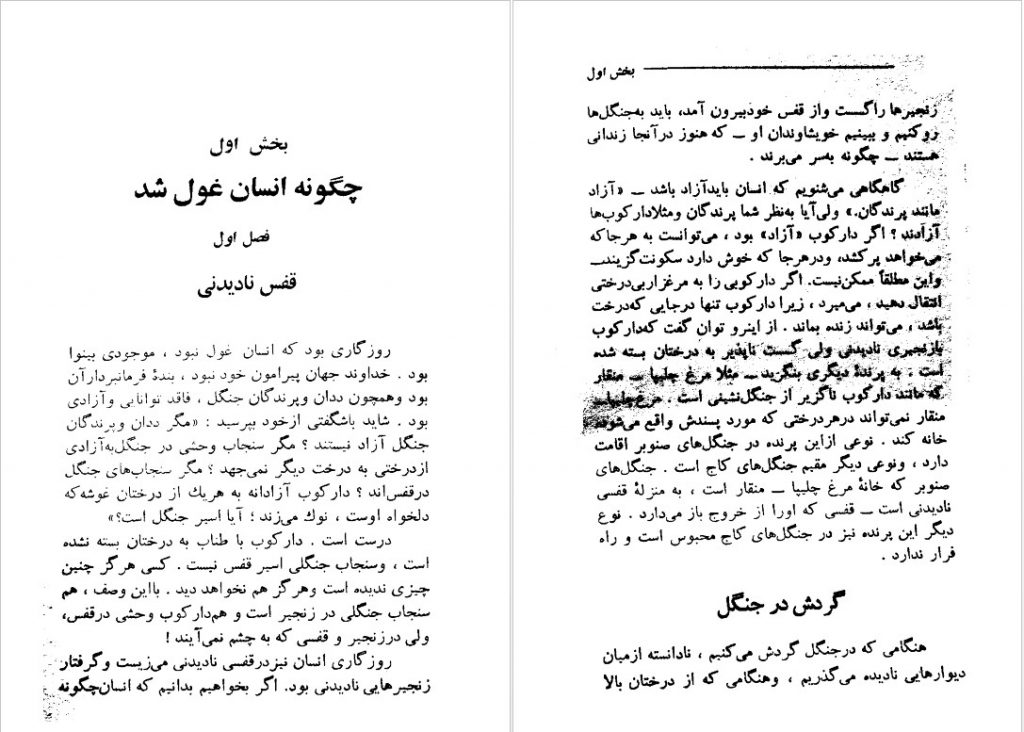 بخش اول
چگونه انسان غول شد
فصل اول
قفس نادیدنی
روزگاری بود که انسان غول نبود ، موجودی بینوا
بود . خداوند جهان پیرامون خود نبود ، بندهٔ فرمانبردارآن
بود وهمچون ددان وپرندگان جنگل ، فاقد توانایی وآزادی
بود . شاید باشگفتی ازخود بپرسید : «مگر ددان وپرندگان
جنگل آزاد نیستند ؟ مگر سنجاب وحشی در جنگل‌به‌آزادی
ازدرختی به درخت دیگر نمی‌جهد ؟ مگر سنجاب‌های جنگل
درقفس‌اند ؟ دارکوب آزادانه به هریك از درختان غوشه‌که
دلخواه اوست ، نوك می‌زند ؛ آیا اسیر جنگل است؟»
درست است . دارکوب با طناب به درختان بسته نشده
است ، وسنجاب جنگلی اسیر قفس نیست . کسی هرگز چنین
چیزی ندیده است وهرگز هم نخواهد دید . بااین وصف ، هم
سنجاب جنگلی در زنجیر است و هم‌دارکوب وحشی درقفس،
ولی درزنجیر و قفسی که به چشم نمی‌آیند !
روزگاری انسان نیزدرقفسی نادیدنی می‌زیست وگرفتار
زنجیرهایی نادیدنی بود. اگر بخواهیم بدانیم که انسان‌چگونه
بخش اول
زنجیرها راگست واز قفس خودبیرون آمد، باید به‌جنگل‌ها
روکنیم و ببینیم خویشاوندان او ــ که هنوز درآنجا زندانی
هستند ــ چگونه به‌سر می‌برند .
گاهگاهی می‌شنویم که انسان بایدآزاد باشد ــ «آزاد
مانند پرندگان.» ولی‌آیا به‌نظر شما پرندگان ومثلادارکوب‌ها
آزادند ؟ اگر دارکوب «آزاد» بود ، می‌توانست به هرجاکه
می‌خواهد پرکشد، ودرهرجا که خوش دارد سکونت‌گزیندــ
واین مطلقاً ممکن‌نیست. اگر دارکوبی را به مرغزاربی‌درختی
انتقال دهید ، می‌میرد ، زیرا دارکوب تنها درجایی که‌درخت
باشد ، می‌تواند زنده بماند . از اینرو توان گفت که‌دارکوب
بازنجیری نادیدنی ولی گست ناپذیر به درختان بسته شده
است . به پرندهٔ دیگری بنگرید ــ مثلا مرغ چلیپا ــ منقار
که مانند دارکوب ناگزیر از جنگل‌نشینی است . مرغ‌چلیپاــ
منقار نمی‌تواند درهردرختی که مورد پسندش واقع می‌شود
خانه کند . نوعی ازاین پرنده در جنگل‌های صنوبر اقامت
دارد ، ونوعی دیگر مقیم جنگل‌های کاج است . جنگل‌های
صنوبر که خانهٔ مرغ چلیپا ــ منقار است ، به منزلهٔ قفسی
نادیدنی است ــ قفسی که اورا از خروج باز می‌دارد . نوع
دیگر این پرنده نیز در جنگل‌های کاج محبوس است و راه
فرار ندارد .
گردش در جنگل
هنگامی که درجنگل گردش می‌کنیم ، نادانسته ازمیان
دیوارهایی نادیده می‌گذریم ، وهنگامی که از درختان بالا